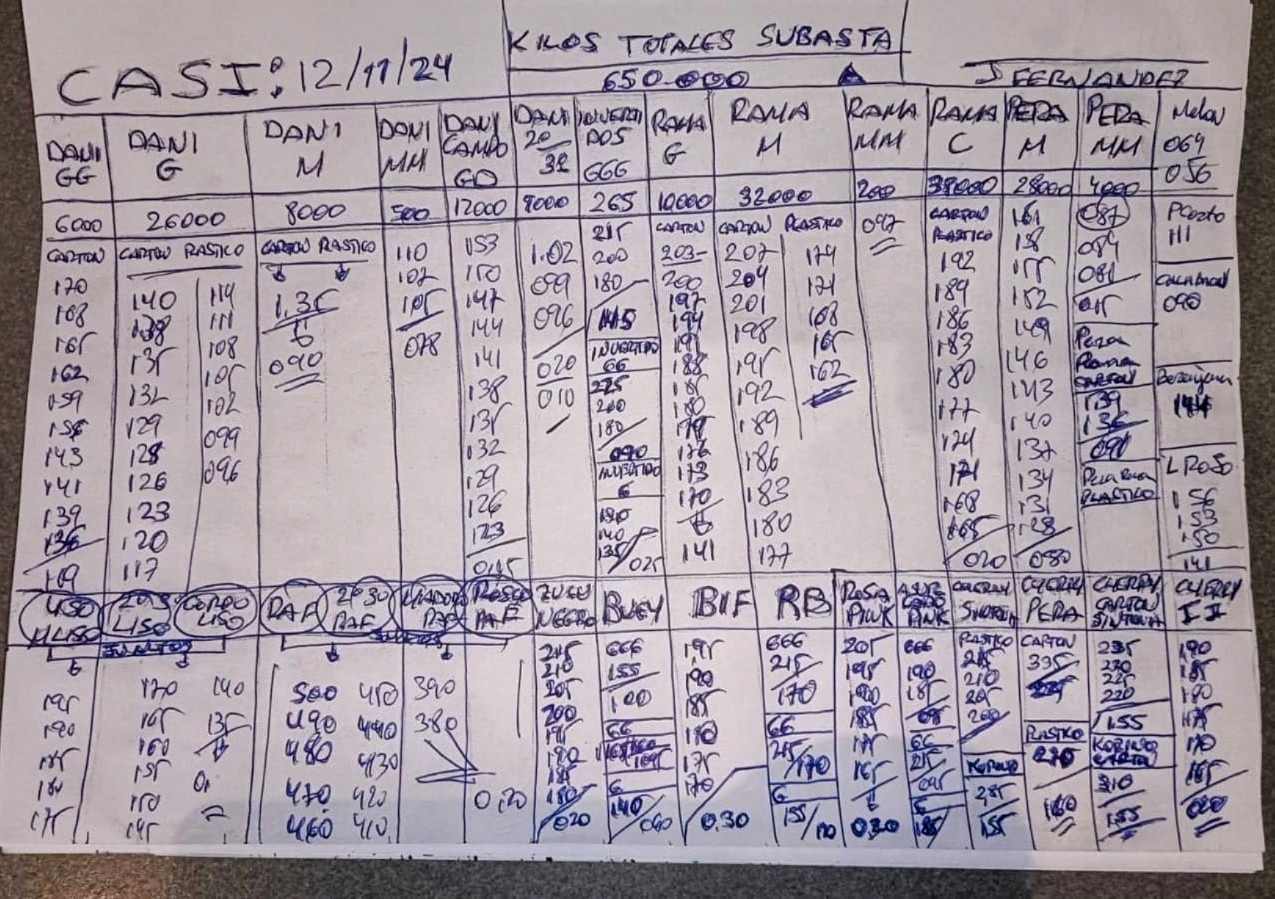 KILOS TOTALES SUBASTA
CASI: 12/11/24
650.000
J FERNANDEZ
DANI GG
DANI G
DANI M
DANI MM
DANI CAMPO GD
DANI 20/32
INVERTIDOS 666
RAMA G
RAMA M
RAMA MM
RAMA C
PERA M
PERA MM
Melon 069 056
6000 26000 8000 500 12000 9000 265 10000 32000 200 38000 28000 4000
CARTON
170
168
165
162
159
156
143
141
139
136
109
CARTON PLASTICO
140 114
138 111
135 108
132 105
129 102
128 099
126 096
123
120
117
CARTON PLASTICO
1.35
6
090
110
107
105
078
153
150
147
144
141
138
135
132
129
126
123
015
1.02
099
096
020
010
215
200
180
145
INVERTIDO
66
225
200
180
090
INVERTIDO
6
190
140
135/025
CARTON
203
200
197
194
191
188
185
180
179
176
173
170
6
141
CARTON PLASTICO
207 174
204 171
201 168
198 165
195 162
192
189
186
183
180
177
097
CARTON
PLASTICO
192
189
186
183
180
177
174
171
168
165
020
161
158
155
152
149
146
143
140
137
134
131
128
080
087
084
081
015
Pera
Rama
CARTON
139
136
091
Pera Rama
PLASTICO
111
090
Berenjena
L ROSO
156
153
150
141
LISO
LISO
GORDO LISO
RAF
2º 30 RAF
RAF
ROSCO RAF
ZULU NEGRO
BUEY
BIF
RB
ROSA PINK
PINK
CHERRY
CHERRY PERA
CHERRY CARTON SINTONIA
CHERRY II
JUNTOS
JUNTOS
195
190
185
180
175
170 140
165 135
160
155
150
145
500 450 390
490 440 380
480 430
470 420
460 410
0.20
215
210
205
200
195
190
185
180
020
666
155
100
66
6
140/060
195
190
185
180
175
170
0.30
666
215
170
66
215/170
6
155/110
205
195
190
185
175
165
6
030
666
190
185
66
215
095
6
185
PLASTICO
215
210
205
200
KORINTO
285
155
CARTON
335
PLASTICO
270
160
235
230
225
220
155
KORINTO
CARTON
310
155
190
185
180
175
170
165
060